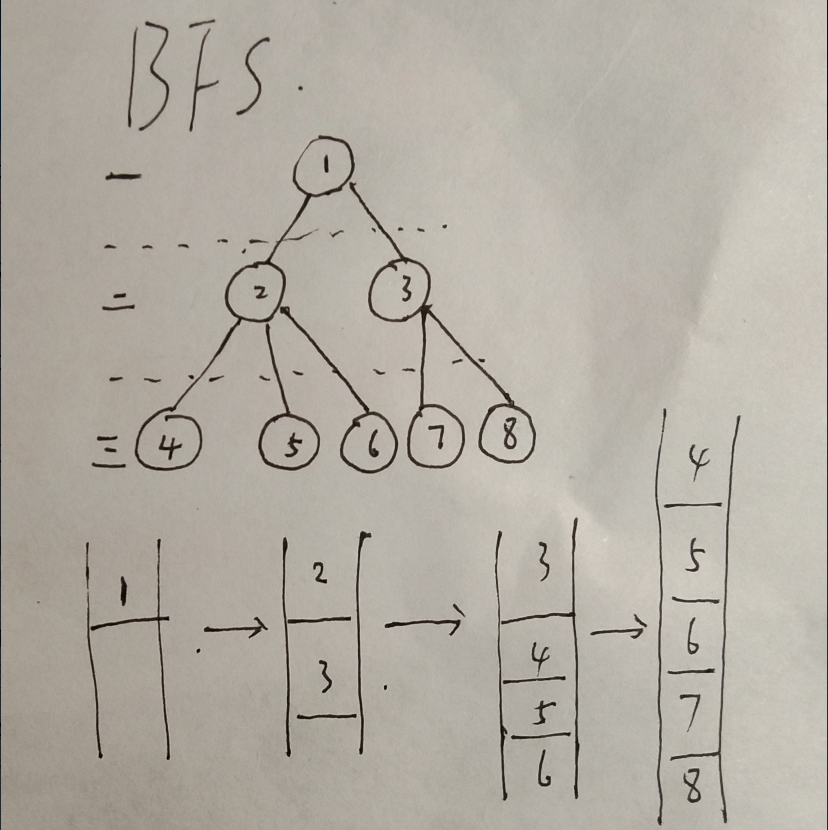 BFS.
一 1
二 2 3
三 4 5 6 7 8
1 → 2 → 3 → 4
3 4 5
5 6
6 7
8